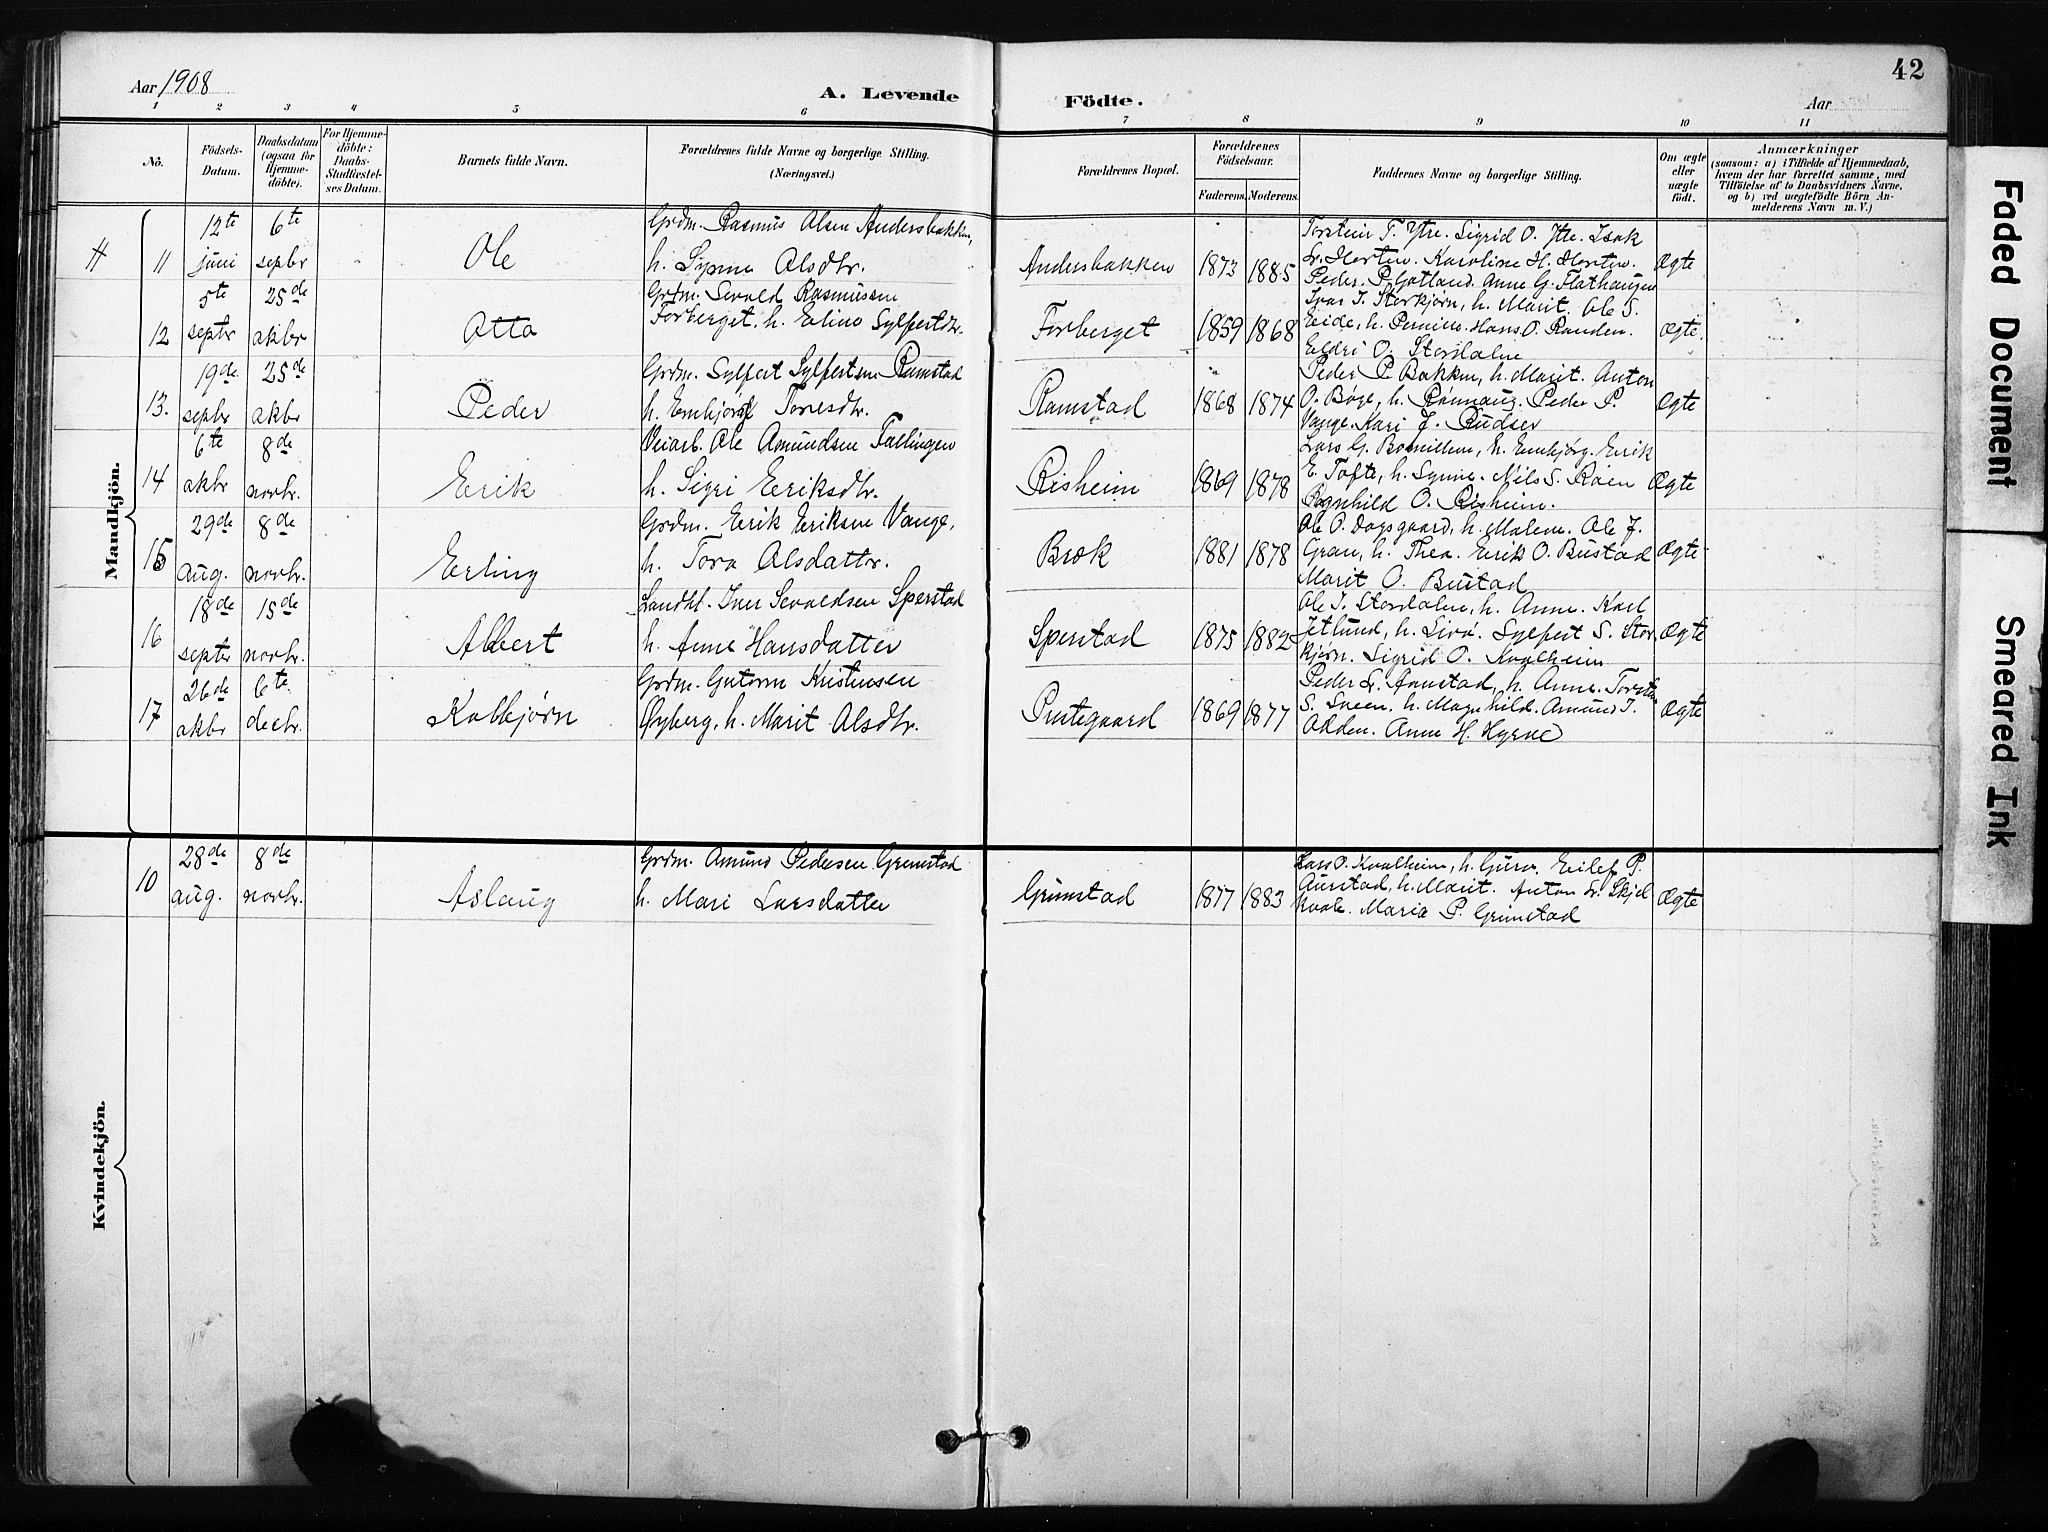 42
Aar 1908
A. Levende Födte.
Aar
1 2 3 4 5 6 7 8 9 10 11
No.
Födsels-Datum.
Daabsdatum (ogsaa for Hjemme-döbte).
For Hjemme-döbte: Daabs-Stadfæstel-ses Datum.
Barnets fulde Navn.
Forældrenes fulde Navne og borgerlige Stilling.
(Næringsvei.)
Forældrenes Bopæl.
Forældrenes Födselsaar.
Faderens. Moderens.
Faddernes Navne og borgerlige Stilling.
Om ægte eller uægte födt.
Anmærkninger
(saasom: a) i Tilfælde af Hjemmedaab,
hvem der har forrettet samme, med
Tilföielse af to Daabsvidners Navne,
og b) ved uægtefödte Börn An-
melderens Navn m. V.)
Mandkjön.
H 11 12te juni 6te sepbr Ole
Grdm. Rasmus Olsen Andersbakken,
h. Synne Olsdtr.
Andersbakken 1873 1885
Torstein T. Ytre. Sigrid O. Ytre. Isak
L. Horten. Karoline H. Horten.
Peder P. Gotland. Anne G. Flathaugen
Ægte
12 5te septbr 25de oktbr Otto
Grdm. Sevald Rasmussen
Forberget. h. Eline Sylfestdtr.
Forberget 1859 1868
Ivar I. Storkjørn, h. Marit. Ole S.
Eide, h. Pernine. Hans O. Randen.
Eldri O. Stordalen
Ægte.
13. 19de sepbr 25de oktbr Peder
Grdm. Sylfest Sylfestsen Ramstad
h. Embjørg Toresdtr.
Ramstad 1868 1874
Peder P. Bakken, h. Marit. Anton
O. Bøje, h. Rønnaug. Peder P.
Vange. Kari J. Rudser
Ægte
14 6te oktbr 8de novbr. Erik
Veiarb. Ole Amundsen Tallingen
h. Sigri Eriksdtr.
Risheim 1869 1878
Lars G. h. Embjørg. Erik
E. Tofte, h. Synne. Nils S. Røen
Ragnhild O. Risheim.
Ægte
15 29de aug. 8de novbr. Erling
Grdm. Erik Eriksen Vange,
h. Tora Olsdattr.
Bræk 1881 1878
Ole O. Dagsgaard, h. Malene. Ole J.
Gran, h. Thea. Erik O. Bustad
Marit O. Bustad
Ægte
16 18de septbr 15de novbr. Albert
Landh. Iver Sevaldsen Sperstad
h. Anne Hansdatter
Sperstad 1875 1882
Ole I. Stordalen, h. Anne. Karl
Jetlund, h. Livø. Sylfest S. Stor
kjørn. Sigrid O. Kvalheim
Ægte
17 26de oktbr 6te decbr. Kolbjørn
Grdm. Gutorm Kristensen
Øyberg, h. Marit Olsdtr.
Prestegaard 1869 1877
Peder L. Aanstad, h. Anne. Torstein
S. Sveen. h. Magnhild. Amund I.
Odden. Anne H. Kyrve
Ægte
Kvindekjön.
10 28de aug. 8de novbr. Aslaug
Grdm. Amund Pedersen Grimstad
h. Mari Larsdatter
Grimstad 1877 1883
Lars O. Kvalheim, h. Guro. Eilef P.
Aurstad, h. Marit. Anton L. Skjel
kvale. Marie P. Grimstad
Ægte
Faded Document
Smeared Ink